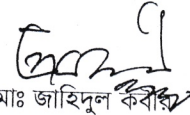 মোঃ জাহিদুল কবীর